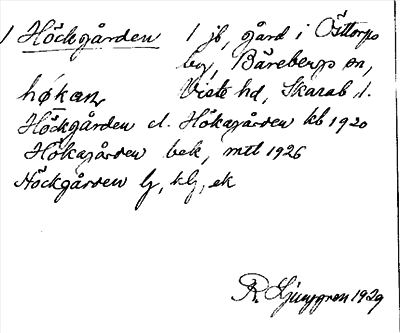 1 Höckgården 1 jb, gård i Östtorps
by, Bärebergs sn,
høkan, Viste hd, Skarab. l.
Höckgården el. Hökagården kb 1920
Hökagården bek, mtl 1926
Höckgården lj, klj, ek
R. Ljunggren 1929